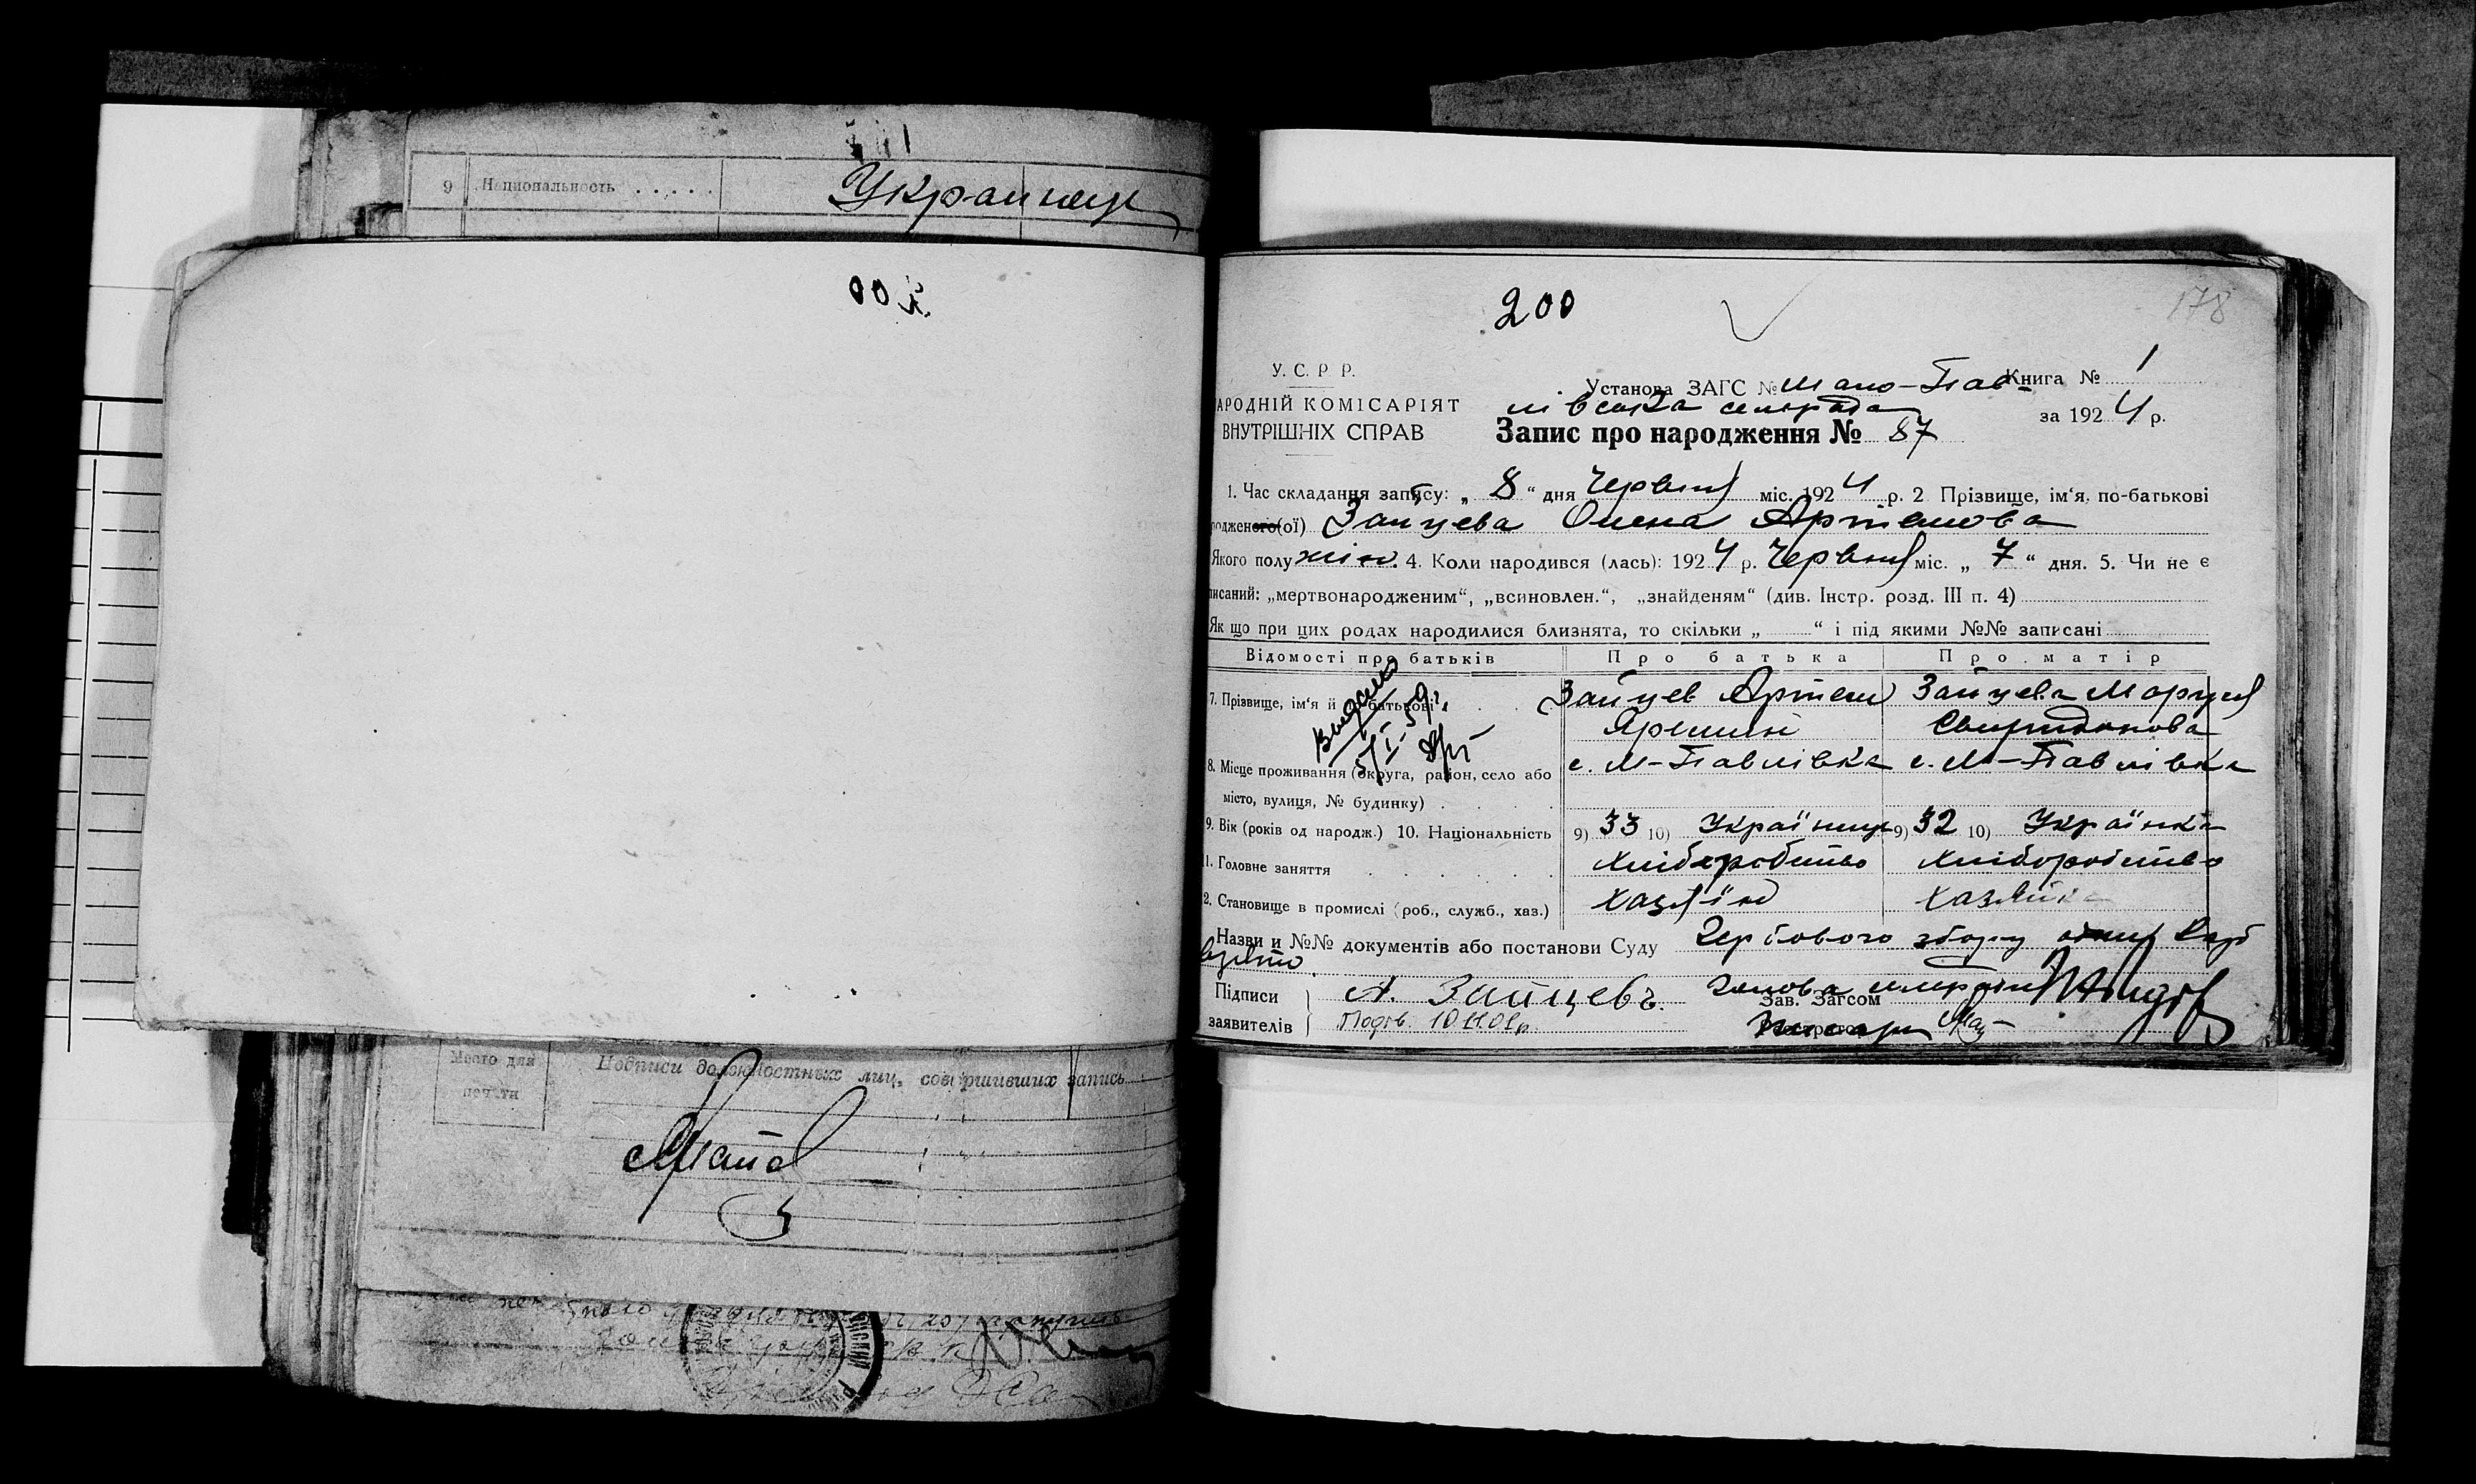 9 Национальность . . . . . Украинец
Место для
печати
Подписи должностных лиц, совершивших запись
200
178
У. С. Р Р.
Установа ЗАГС № Мало-Пав-
Книга № 1
АРОДНІЙ КОМІСАРІЯТ
лівська сельрада
за 1924 р.
ВНУТРІШНІХ СПРАВ
Запис про народження № 87
1. Час складання запису: „ 8 “ дня Червня міс. 1924 р. 2 Прізвище, ім'я, по-батькові
родженого(ої) Зайцева Олена Артемова
Якого полу жін. 4. Коли народився (лась): 1924 р. Червня міс. „ 7 “ дня. 5. Чи не є
писаний: „мертвонародженим“, „всиновлен.“, „знайденям“ (див. Інстр. розд. III п. 4)
Як що при цих родах народилися близнята, то скільки „ “ і під якими №№ записані
Відомості про батьків Про батька Про матір
7. Прізвище, ім'я й по батькові Зайцев Артем Зайцева Маруся
Яремин Свиридонова
Выдано
5/I-59г.
8. Місце проживання (округа, район, село або с. М-Павлівка с. М-Павлівка
місто, вулиця, № будинку)
9. Вік (років од народж.) 10. Національність 9) 33 10) Українець 9) 32 10) Українка
11. Головне заняття хліборобство хліборобство
2. Становище в промислі (роб., служб., хаз.) хазяїн хазяйка
Назви и №№ документів або постанови Суду Гербового збору
Підписи
заявителів
А. Зайцевъ.
Голова сельради
Зав. Загсом
Подтв. 10.11.01г.